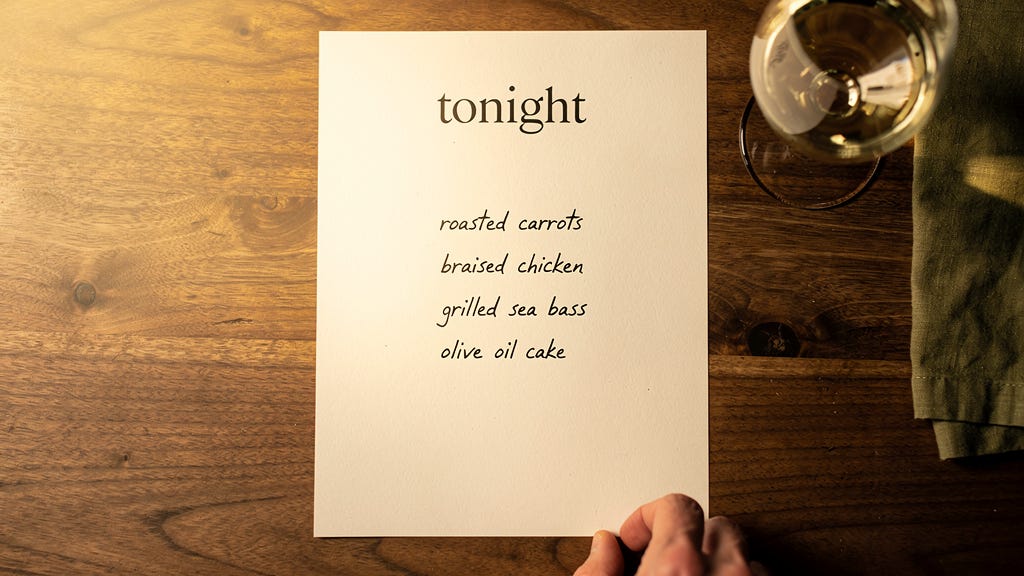 tonight
roasted carrots
braised chicken
grilled sea bass
olive oil cake